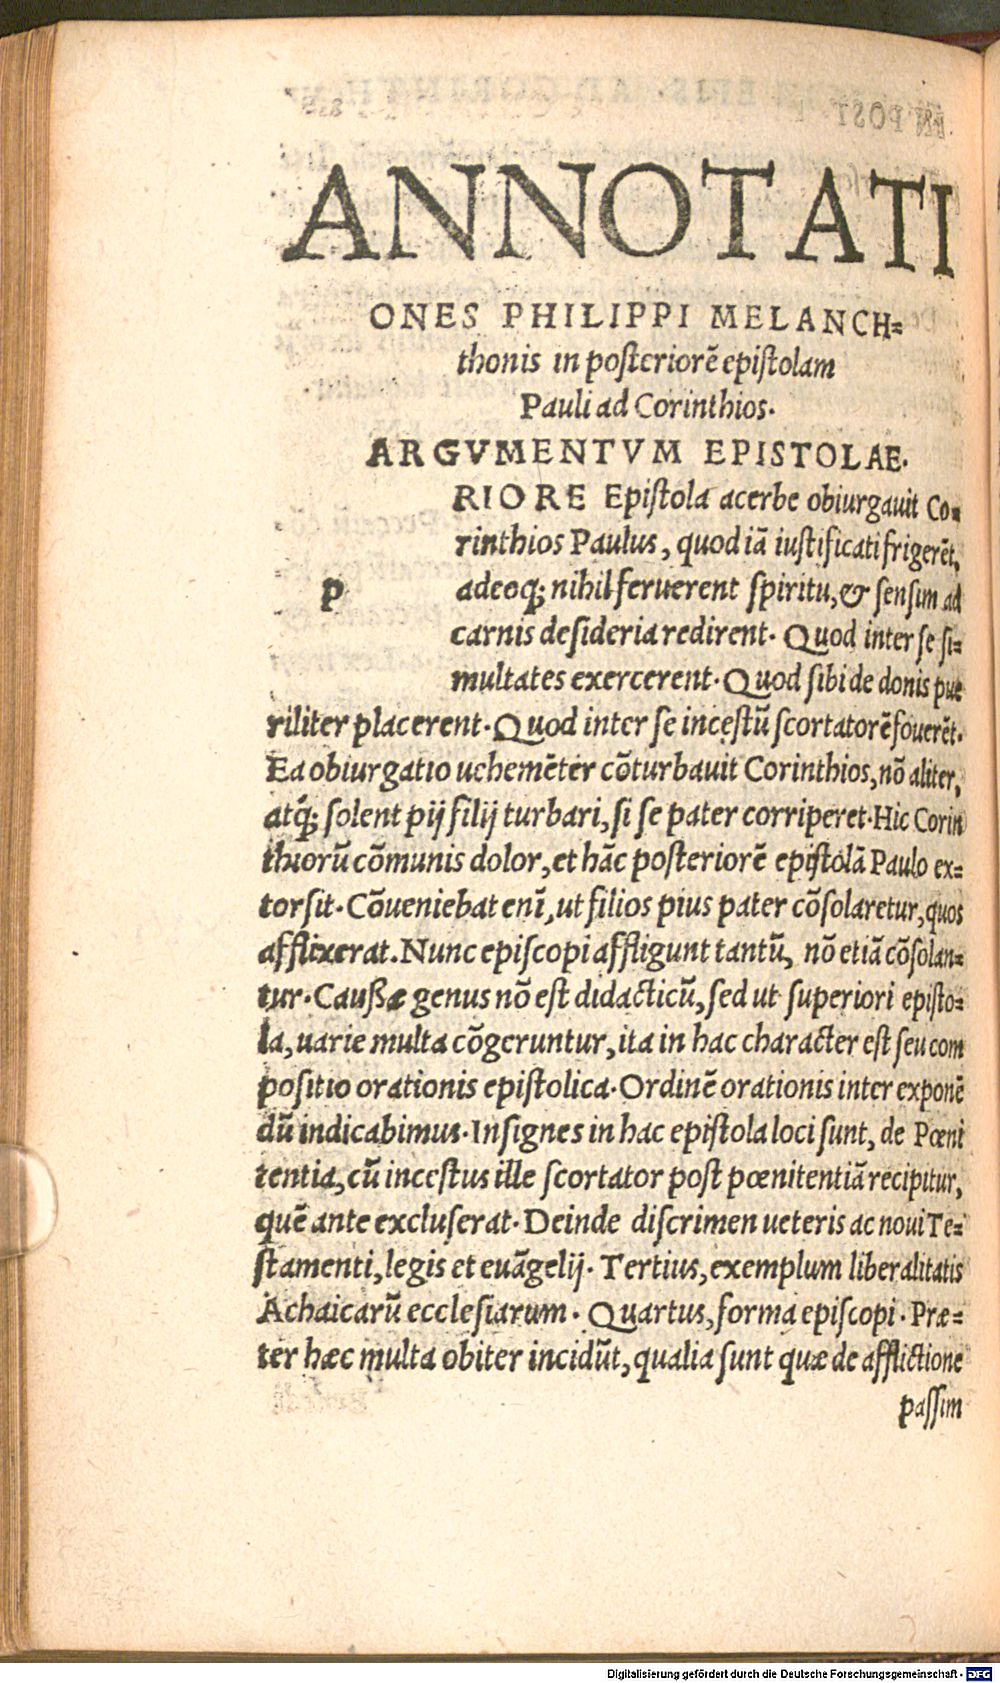 ANNOTATI
ONES PHILIPPI MELANCH=
thonis in posteriorē epistolam
Pauli ad Corinthios.
ARGVMENTVM EPISTOLAE.
p RIORE Epistola acerbe obiurgauit Co=
rinthios Paulus, quod iā iustificati frigerēt,
adeoq; nihil feruerent spiritu, & sensim ad
carnis desideria redirent. Quod inter se si=
multates exercerent. Quod sibi de donis pue
riliter placerent. Quod inter se incestū scortatorē fouerēt.
Ea obiurgatio uehemēter cōturbauit Corinthios, nō aliter,
atq̃; solent pij filij turbari, si se pater corriperet. Hic Corin
thiorū cōmunis dolor, et hāc posteriorē epistolā Paulo ex=
torsit. Cōueniebat enī, ut filios pius pater cōsolaretur, quos
afflixerat. Nunc episcopi affligunt tantū, nō etiā cōsolan=
tur. Caußæ genus nō est didacticū, sed ut superiori episto=
la, uarie multa cōgeruntur, ita in hac character est seu com
positio orationis epistolica. Ordinē orationis inter exponē
dū indicabimus. Insignes in hac epistola loci sunt, de Pœni
tentia, cū incestus ille scortator post pœnitentiā recipitur,
quē ante excluserat. Deinde discrimen ueteris ac noui Te=
stamenti, legis et euāgelij. Tertius, exemplum liberalitatis
Achaicarū ecclesiarum. Quartus, forma episcopi. Præ=
ter hæc multa obiter incidūt, qualia sunt quæ de afflictione
passim
Digitalisierung gefördert durch die Deutsche Forschungsgemeinschaft - DFG